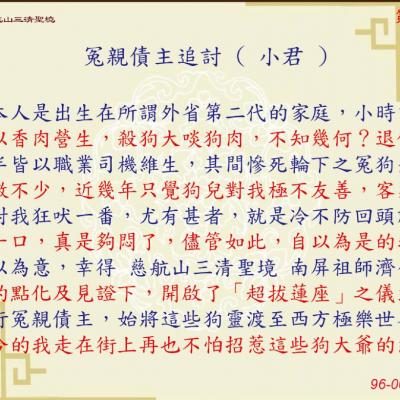 航山三清聖境
冤親債主追討 ( 小君 )
本人是出生在所謂外省第二代的家庭，小時
以香肉營生，殺狗大啖狗肉，不知幾何？退
年皆以職業司機維生，其間慘死輪下之冤狗
數不少，近幾年只覺狗兒對我極不友善，客
對我狂吠一番，尤有甚者，就是冷不防回頭
一口，真是夠悶了，儘管如此，自以為是的
以為意，幸得 慈航山三清聖境 南屏祖師濟
的點化及見證下，開啟了「超拔蓮座」之儀
行冤親債主，始將這些狗靈渡至西方極樂世
今的我走在街上再也不怕招惹這些狗大爺的